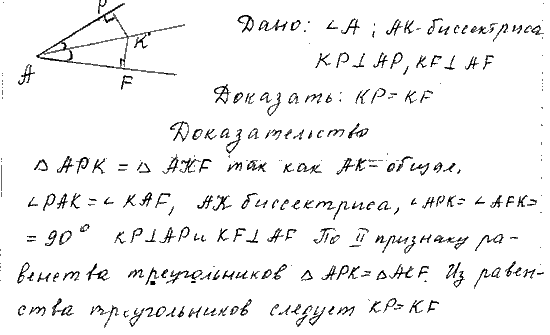 P
K
A
F
Дано: ∠A ; AK-биссектриса
KP⊥AP, KF⊥AF
Доказать: KP=KF
Доказательство
△ APK = △ AKF так как AK=общая,
∠PAK=∠ KAF, AK биссектриса, ∠APK=∠AFK=
=90° KP⊥AP и KF⊥AF По II признаку ра-
венства треугольников △ APK=△AKF. Из равен-
ства треугольников следует KP=KF